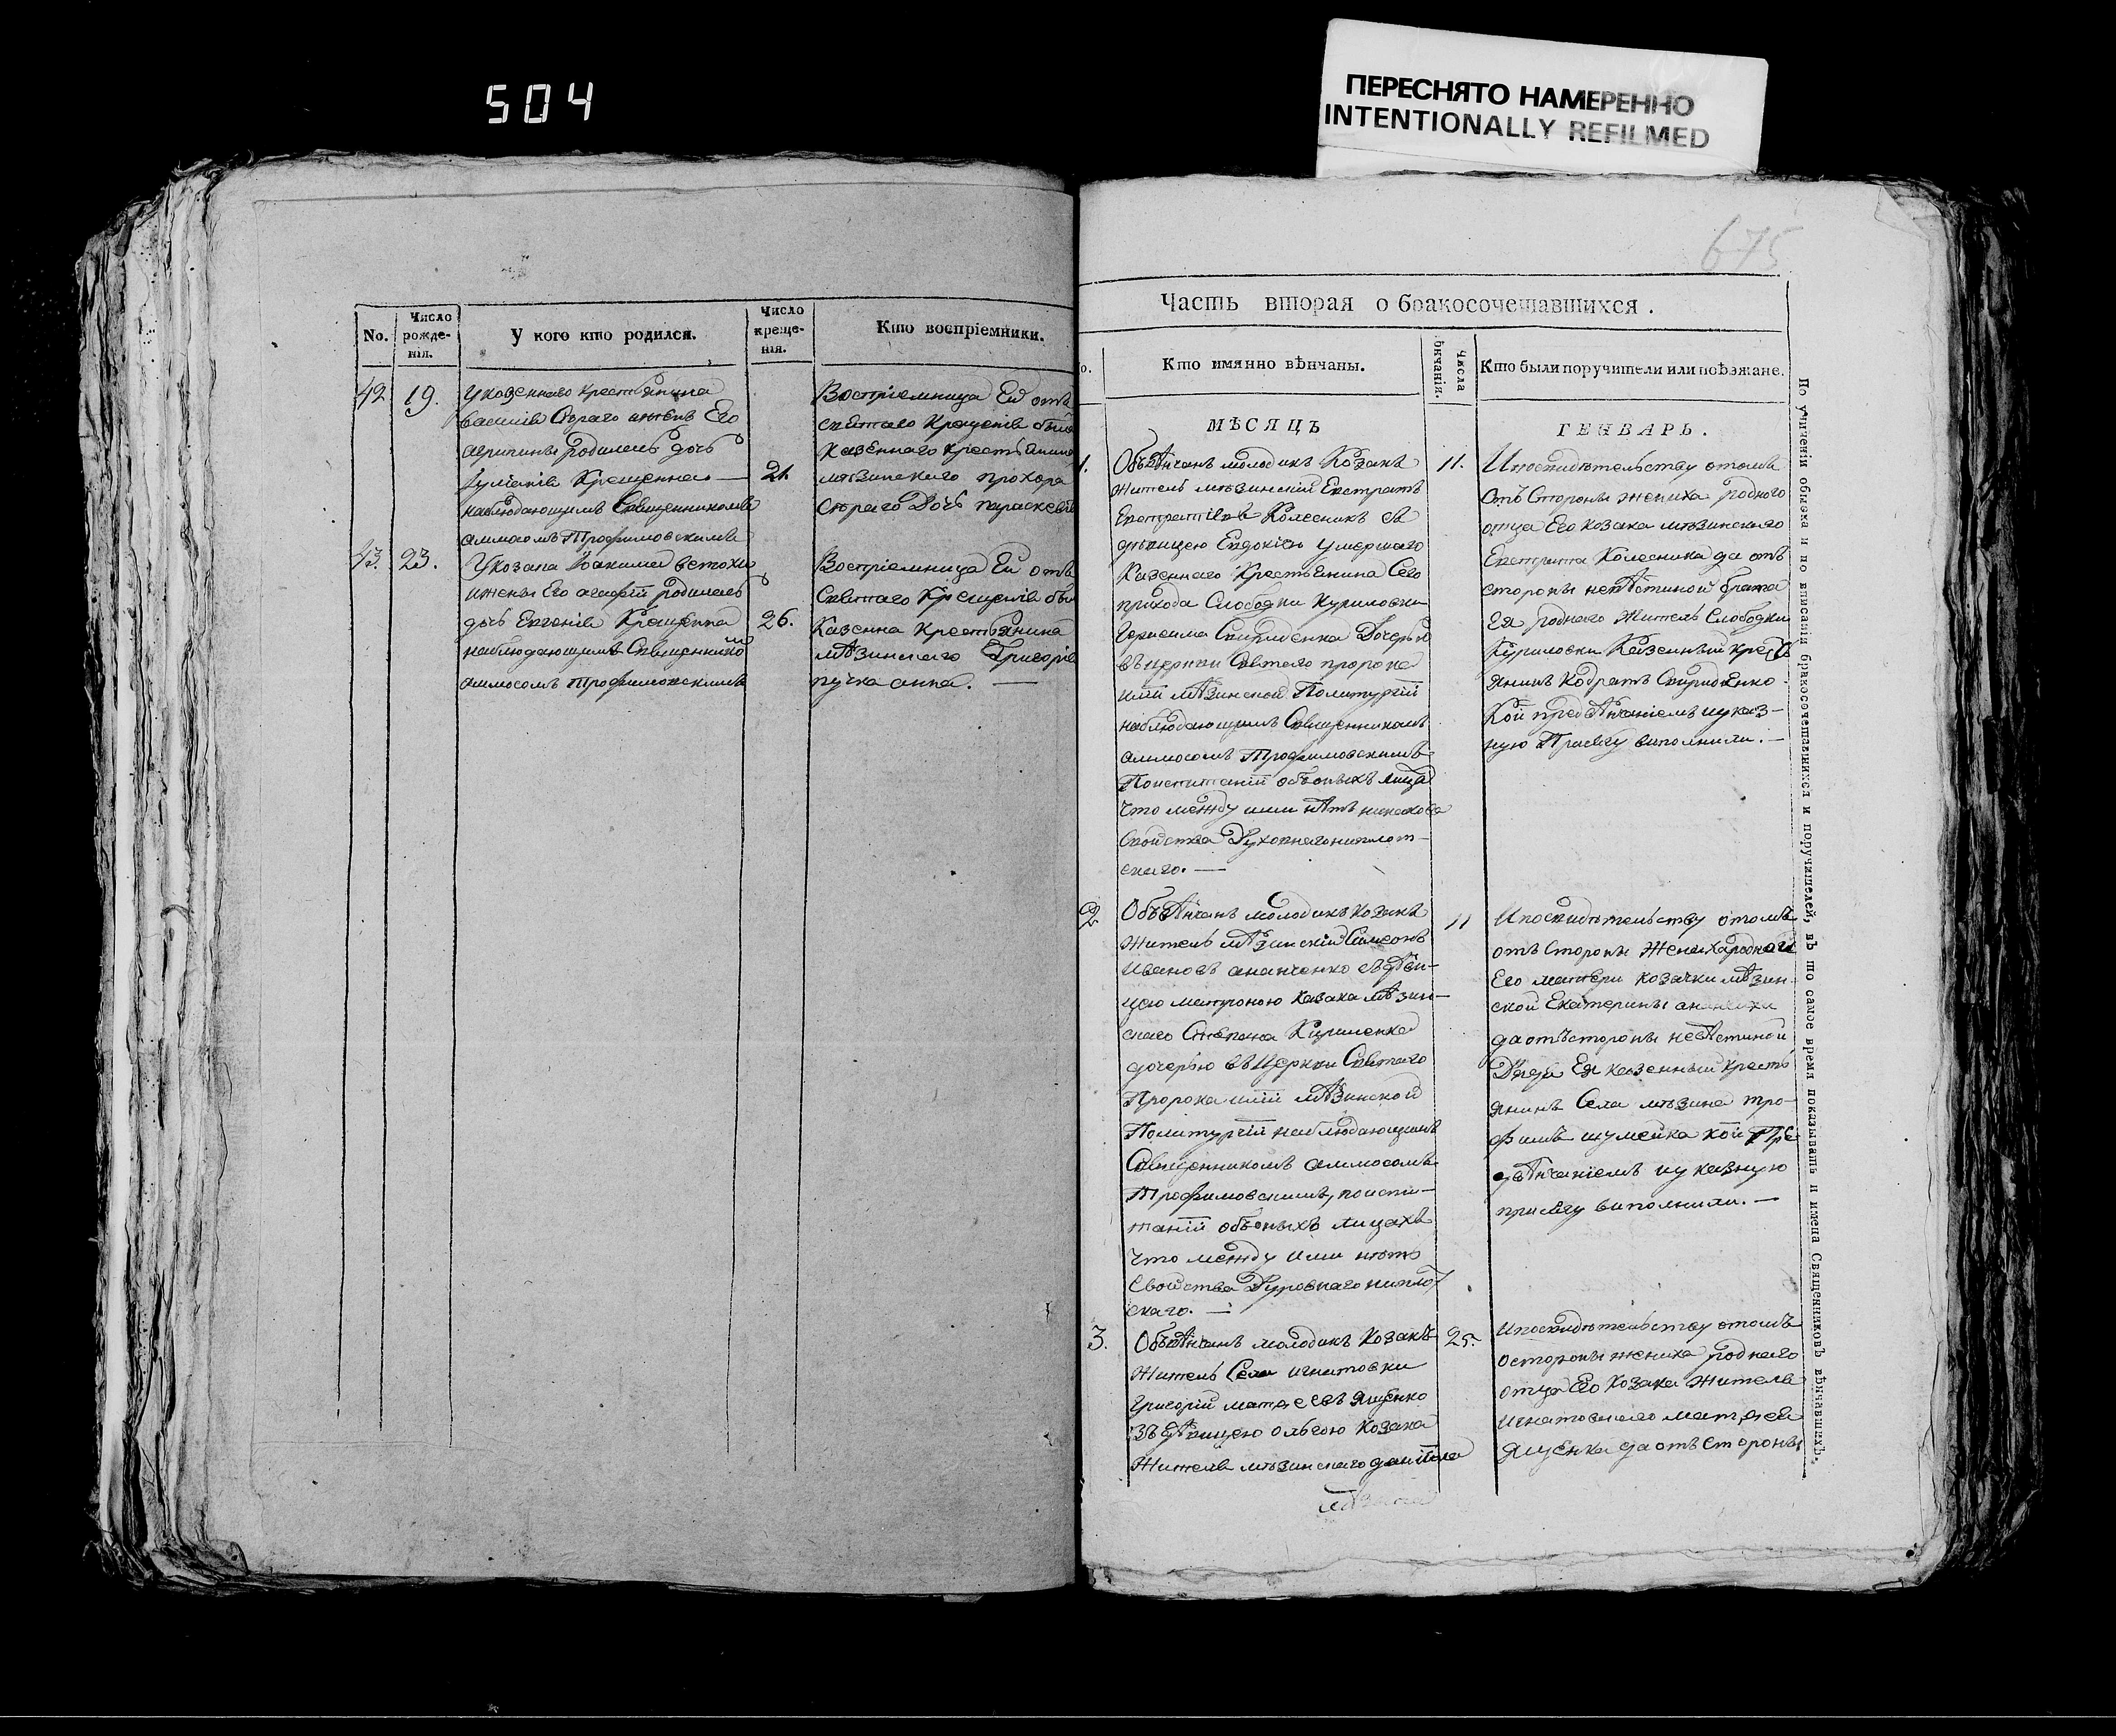 504
ПЕРЕСНЯТО НАМЕРЕННО
INTENTIONALLY REFILMED
No.
Число рожде-нія.
У кого кто родился.
Число креще-нія.
Кто воспріемники.
42
19.
Указеннаго крестьянина
василія Сѣраго ижены Его
агрипины родилась дочь
Іуліанія Крещенна —
21.
наблюдающимъ Священникомъ
аммосомъ Трофимовскимъ
Воспріемница Ей отъ
святаго Крещенія
Казеннаго крестьянина
мѣзинскаго прохора
Сѣраго Дочь параскевія
43.
23.
Укозака Іоакима
ижены Его агафіи родилась
дочь Евгенія Крещенна
26.
наблюдающимъ Священником
аммосомъ Трофимовскимъ
Воспріемница Ей отъ
Святаго Крещенія
Казенна Крестьянина
мѣзинскаго Григорія
пучка анна. —
675
Часть вторая о бракосочетавшихся.
о.
Кто имянно вѣнчаны.
Числа вѣнчанія.
Кто были поручители или поѣзжане.
МѢСЯЦЪ
ГЕНВАРЬ.
1.
Объвѣнчанъ молодикъ Козакъ
Житель мѣзинскій Евстратъ
Евстратіевъ Колесникъ съ
дѣвицею Евдокіею умершаго
Казеннаго Крестьянина Сего
прихода Слободки Куриловки
Герасима Свириденка Дочерью
въ церкви Святаго пророка
иліи мѣзинской Политургіи
наблюдающимъ Священникомъ
аммосомъ Трофимовскимъ
Поиспитаніи объоныхъ лицахъ
Что между ими нѣтъ никакова
Свойства Духовнагониплот-
скаго. —
11.
Ипосвидѣтельству отомъ
Отъ Стороны жениха родного
отца Его козака мѣзинскаго
Евстрата Колесника да отъ
стороны невѣстиной брата
Ея роднаго Житель Слободки
Куриловки Казенный крестъ
янинъ Кодратъ Свириденко
Кои предвѣнчаніемъ иуказ-
ную Присягу виполнили. —
2
Объвѣнчанъ молодикъ козакъ
Житель мѣзинскій Симеонъ
Ивановъ ананченко съдѣви-
цею матроною казака мѣзин-
скаго Стефана Кириленка
дочерью въЦеркви Святаго
Пророка иліи мѣзинской
Политургіи наблюдающимъ
Священникомъ аммосомъ
Трофимовскимъ, поиспи-
таніи объоныхъ лицахъ
Что между ими нѣтъ
Свойства Духовнаго ниплот
скаго. —
11
Ипосвидѣтельству отомъ
отъ Стороны Жениха родной
Его матери козачки мѣзин-
ской Екатерины
даотъстороны невѣстиной
Дяда Ея казенный кресть
янинъ Села мѣзина тро-
фимъ шумейка кои Пре
двѣнчаніемъ иуказную
присягу виполнили. —
3.
Объвѣнчанъ молодикъ Козакъ
Житель Села игнатовки
Григорій матѳеевъ Ященко
Зъдѣвицею ольгою Козака
Жителя мѣзинскаго даніила
25.
Ипосвидѣтельству отомъ
остороны жениха роднаго
отца Его Козака Жителя
игнатовскаго матѳея
Ященка даотъ Стороны
По учиненіи обыска и по вписаніи бракосочетавшихся и поручителей, въ то самое время показывать и имена Священниковъ вѣнчавшихъ.